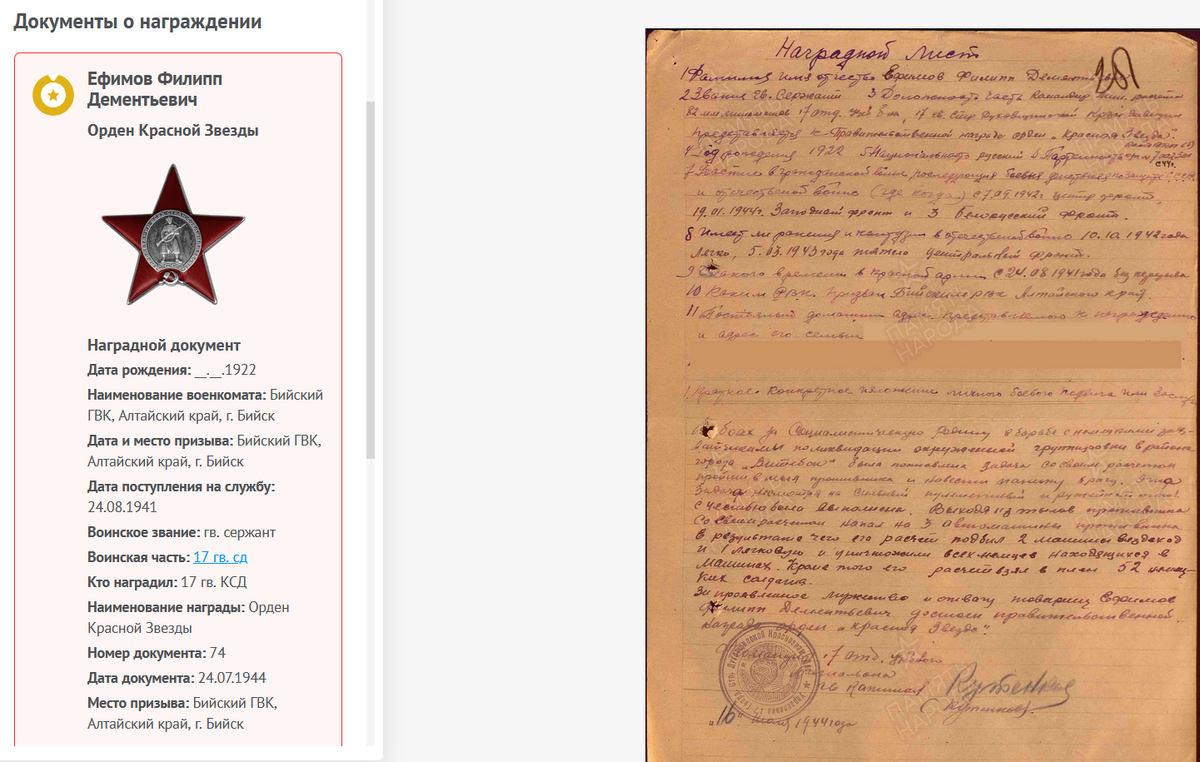 Документы о награждении
Ефимов Филипп
Дементьевич
Орден Красной Звезды
Наградной документ
Дата рождения: __.__.1922
Наименование военкомата: Бийский
ГВК, Алтайский край, г. Бийск
Дата и место призыва: Бийский ГВК,
Алтайский край, г. Бийск
Дата поступления на службу:
24.08.1941
Воинское звание: гв. сержант
Воинская часть: 17 гв. сд
Кто наградил: 17 гв. КСД
Наименование награды: Орден
Красной Звезды
Номер документа: 74
Дата документа: 24.07.1944
Место призыва: Бийский ГВК,
Алтайский край, г. Бийск
Наградной лист
1 Фамилия имя отчество Ефимов Филипп Дементьевич
2 Звание гв. Сержант 3 Должность часть Командир мин. расчета
82 мм минометов 17 отд. 17 гв. Стр Духовщинской Красно
Представляется к Правительственной награде орден "Красная Звезда".
4 Год рождения 1922 5 Национальность русский 6 Партийность
с 44 г.
7 Участие в гражданской войне последующих боевых действиях по защите СССР
и отечественной войне (где когда) с 7.09.1942г. центр фронт,
19.01.1944г. Западный фронт и 3 Белорусский фронт.
8 Имеет ли ранения и контузии в отечественной войне 10.10.1942 года
легко, 5.03.1943 года тяжело центральный фронт.
9 С какого времени в Красной армии с 24.08.1941 года без перерыва
10 Каким РВК призван Бийским РВК Алтайского края.
11 Постоянный домашний адрес представляемого к награждению
и адрес его семьи
1 Краткое конкретное изложение личного боевого подвига или заслуг
В боях за Социалистическую родину в борьбе с немецкими зах-
ватчиками по ликвидации окруженной группировки в районе
города "Витебск" была поставлена задача со своим расчетом
пройти в тыл противника и нанести панику врагу. Эта
задача несмотря на сильный пулеметный и ружейный огонь
с честью была выполнена. Выходя из тылов противника
со своим расчетом напал на 3 автомашины противника
в результате чего его расчет подбил 2 машины вездеход
и 1 легковую и уничтожили всех немцев находящихся в
машинах. Кроме того его расчет взял в плен 52 немец-
ких солдата.
За проявленное мужество и отвагу товарищ Ефимов
Филипп Дементьевич достоин правительственной
награды орден "Красная Звезда".
Командир 17 отд. учебного
батальона
гв капитан
"16" июля 1944 года
ПАМЯТЬ НАРОДА